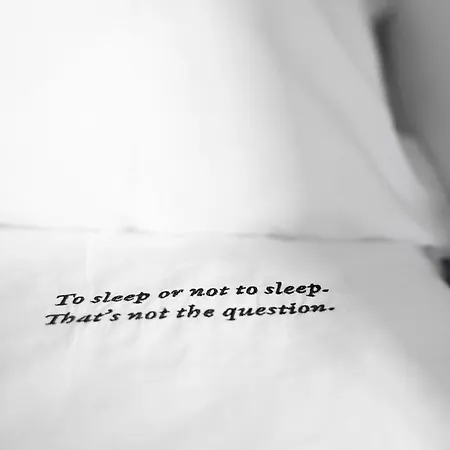 To sleep or not to sleep.
That's not the question.